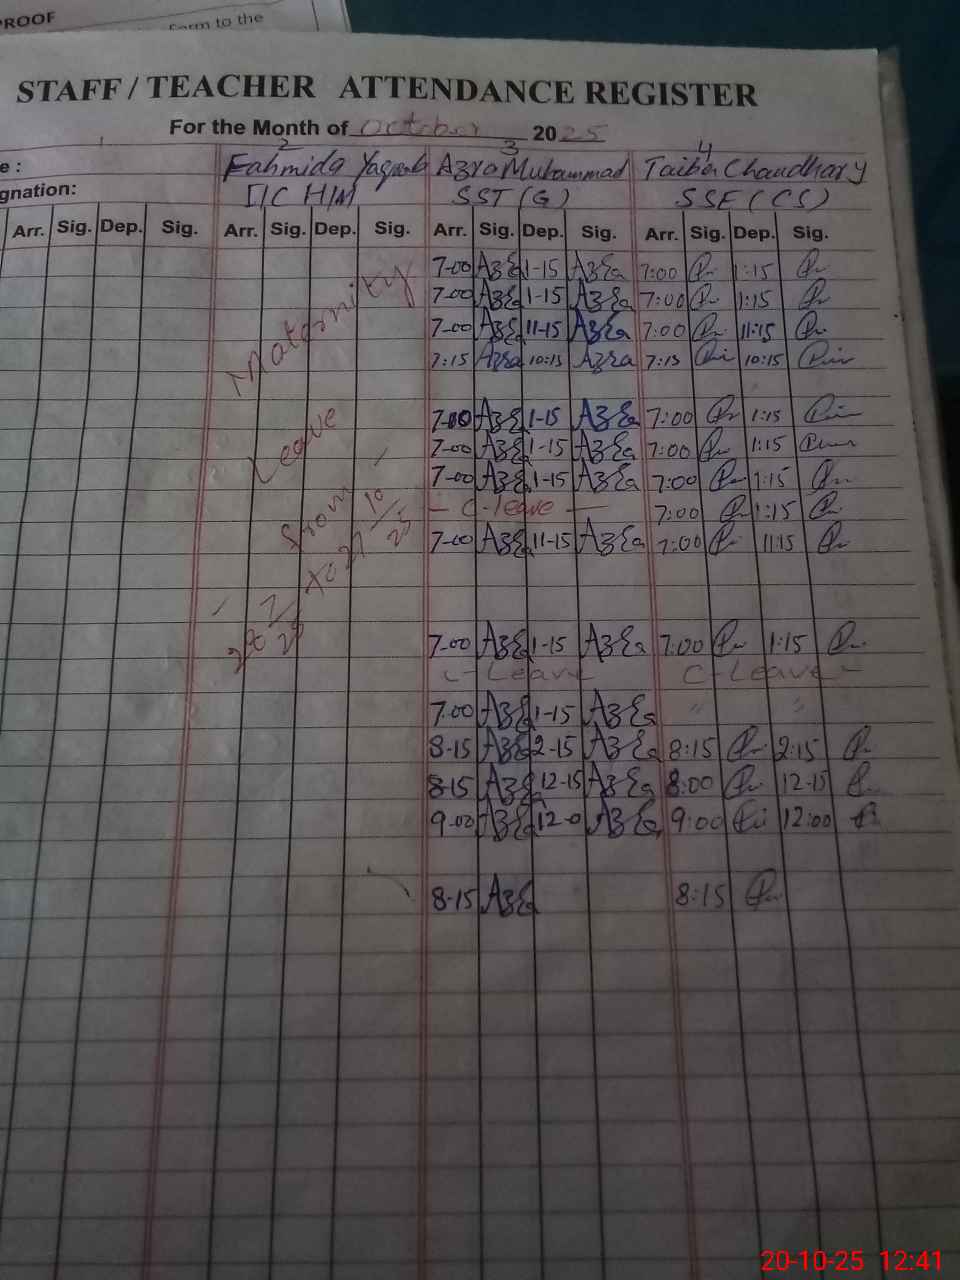 ROOF
form to the
STAFF / TEACHER ATTENDANCE REGISTER
For the Month of October 2025
2 3 4
e: Fahmida Yaqoob Azra Muhammad Taiba Chaudhary
gnation: I/C H/M SST (G) SSE (CS)
Arr. Sig. Dep. Sig. Arr. Sig. Dep. Sig. Arr. Sig. Dep. Sig. Arr. Sig. Dep. Sig.
7-00 Azra 1-15 Azra 7:00 1:15
7-00 Azra 1-15 Azra 7:00 1:15
7-00 Azra 11-15 Azra 7:00 11:15
7:15 Azra 10:15 Azra 7:15 10:15
7-00 Azra 1-15 Azra 7:00 1:15
7-00 Azra 1-15 Azra 7:00 1:15
7-00 Azra 1-15 Azra 7:00 1:15
- C-leave - 7:00 1:15
7-00 Azra 11-15 Azra 7:00 11:15
7-00 Azra 1-15 Azra 7:00 1:15
C-Leave C-Leave -
7.00 Azra 1-15 Azra " "
8-15 Azra 2-15 Azra 8:15 2:15
8-15 Azra 12-15 Azra 8:00 12-15
9-00 Azra 12-0 Azra 9:00 12:00
8-15 Azra 8:15
Maternity
Leave
from
7/25 to 27 10/25
20-10-25 12:41